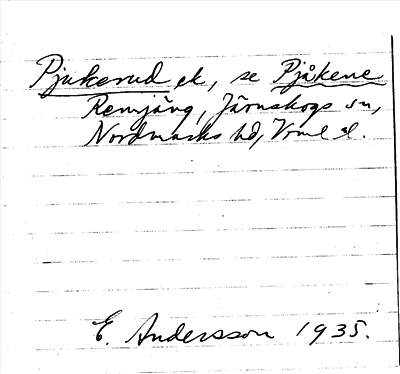 Pjukerud ek, se Pjåkene
Remjäng, Järnskogs sn,
Nordmarks hd, Vrml l.
E. Andersson 1935.